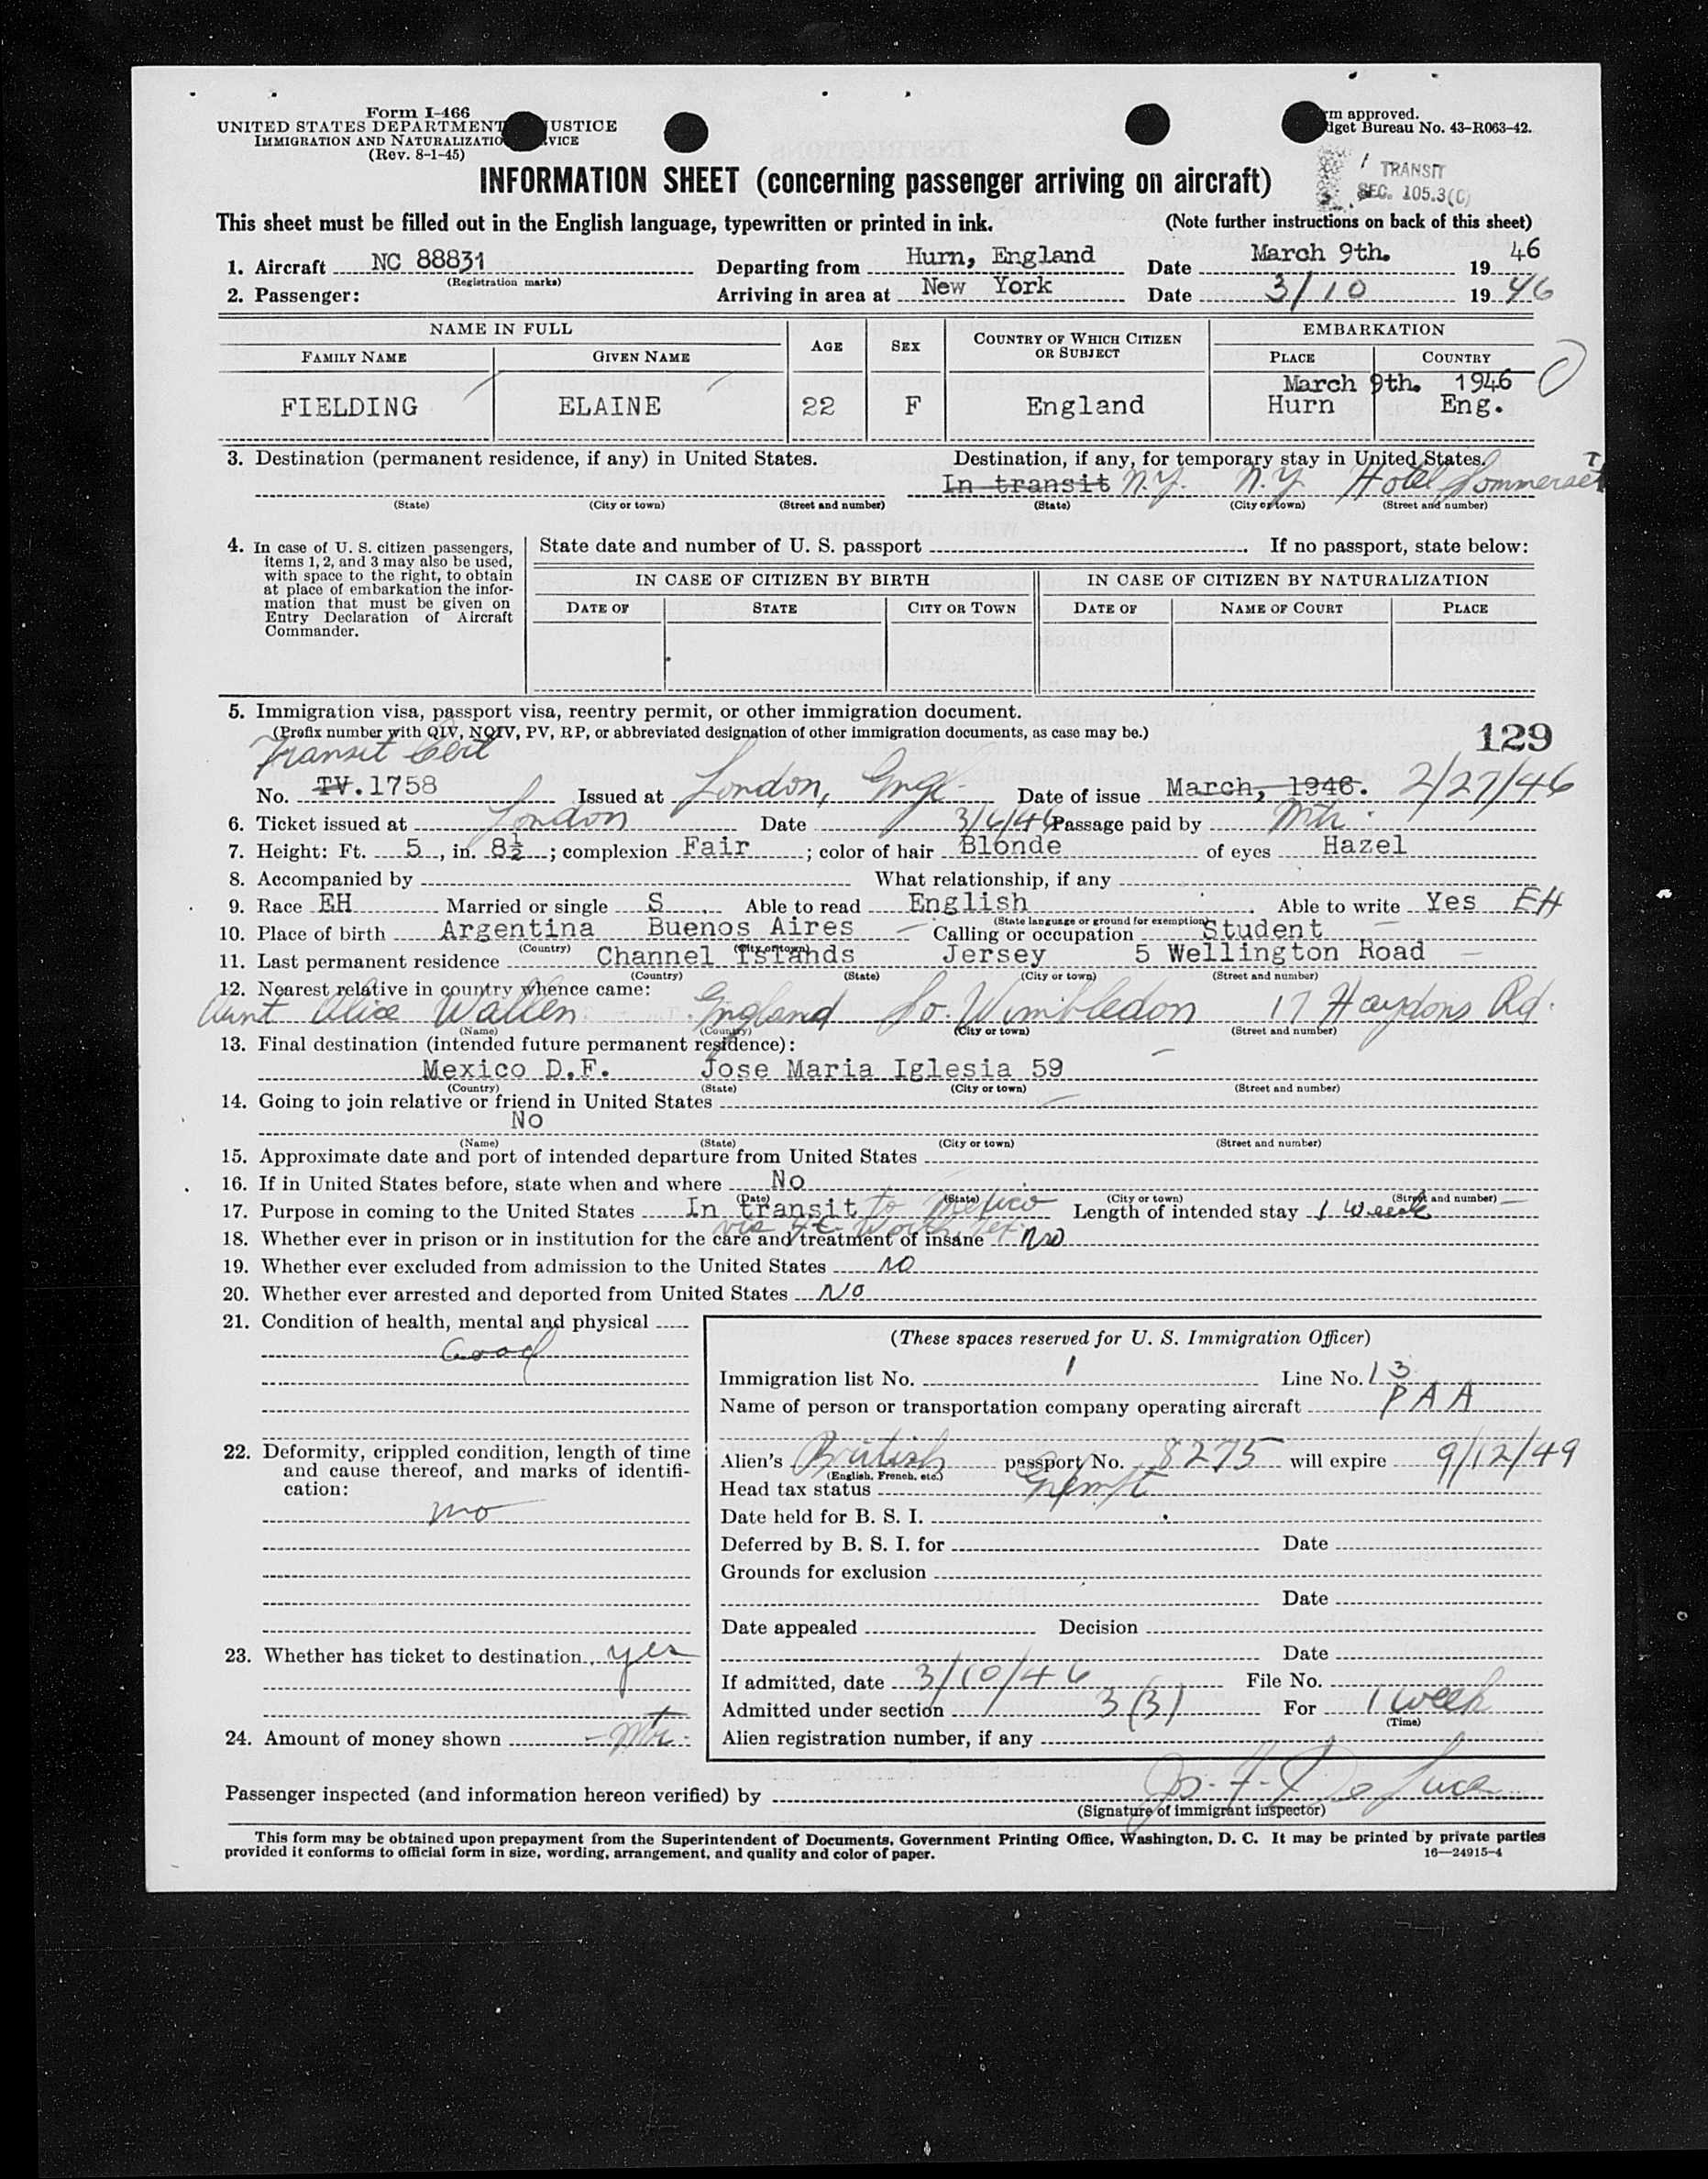 Form I-466
UNITED STATES DEPARTMENT JUSTICE
IMMIGRATION AND NATURALIZATIO VICE
(Rev. 8-1-45)
rm approved.
dget Bureau No. 43-R063-42.
INFORMATION SHEET (concerning passenger arriving on aircraft)
TRANSIT
SEC. 105.3(C)
This sheet must be filled out in the English language, typewritten or printed in ink. (Note further instructions on back of this sheet)
1. Aircraft NC 88831 Departing from Hurn, England Date March 9th. 19 46
(Registration marks)
2. Passenger: Arriving in area at New York Date 3/10 19 46
NAME IN FULL AGE SEX COUNTRY OF WHICH CITIZEN OR SUBJECT EMBARKATION
FAMILY NAME GIVEN NAME PLACE COUNTRY
March 9th. 1946
FIELDING ELAINE 22 F England Hurn Eng.
3. Destination (permanent residence, if any) in United States. Destination, if any, for temporary stay in United States.
In transit N.Y. N.Y Hotel Sommerset
(State) (City or town) (Street and number) (State) (City or town) (Street and number)
4. In case of U. S. citizen passengers, items 1, 2, and 3 may also be used, with space to the right, to obtain at place of embarkation the information that must be given on Entry Declaration of Aircraft Commander.
State date and number of U. S. passport . If no passport, state below:
IN CASE OF CITIZEN BY BIRTH IN CASE OF CITIZEN BY NATURALIZATION
DATE OF STATE CITY OR TOWN DATE OF NAME OF COURT PLACE
5. Immigration visa, passport visa, reentry permit, or other immigration document.
(Prefix number with QIV, NQIV, PV, RP, or abbreviated designation of other immigration documents, as case may be.)
129
Transit Cert
No. TV. 1758 Issued at London, Eng. Date of issue March, 1946. 2/27/46
6. Ticket issued at London Date 3/6/46 Passage paid by Mtr.
7. Height: Ft. 5, in. 8½; complexion Fair; color of hair Blonde of eyes Hazel
8. Accompanied by What relationship, if any
9. Race EH Married or single S Able to read English Able to write Yes EH
(State language or ground for exemption)
10. Place of birth Argentina Buenos Aires Calling or occupation Student
(Country) (City or town)
11. Last permanent residence Channel Islands Jersey 5 Wellington Road
(Country) (State) (City or town) (Street and number)
12. Nearest relative in country whence came:
Aunt Alice Wallen England So. Wimbledon 17 Haydons Rd.
(Name) (Country) (City or town) (Street and number)
13. Final destination (intended future permanent residence):
Mexico D.F. Jose Maria Iglesia 59
(Country) (State) (City or town) (Street and number)
14. Going to join relative or friend in United States
No
(Name) (State) (City or town) (Street and number)
15. Approximate date and port of intended departure from United States
16. If in United States before, state when and where No
(Date) (State) (City or town) (Street and number)
17. Purpose in coming to the United States In transit to Mexico Length of intended stay 1 week
via Ft. Worth, Tex.
18. Whether ever in prison or in institution for the care and treatment of insane No
19. Whether ever excluded from admission to the United States NO
20. Whether ever arrested and deported from United States No
21. Condition of health, mental and physical
Good
22. Deformity, crippled condition, length of time and cause thereof, and marks of identification:
no
23. Whether has ticket to destination yes
24. Amount of money shown - Mtr -
(These spaces reserved for U. S. Immigration Officer)
Immigration list No. 1 Line No. 13
Name of person or transportation company operating aircraft PAA
Alien's British passport No. 8275 will expire 9/12/49
(English, French, etc.)
Head tax status Exempt
Date held for B. S. I.
Deferred by B. S. I. for Date
Grounds for exclusion
Date
Date appealed Decision
Date
If admitted, date 3/10/46 File No.
Admitted under section 3(3) For 1 week
(Time)
Alien registration number, if any
Passenger inspected (and information hereon verified) by Jos. F. De Luca
(Signature of immigrant inspector)
This form may be obtained upon prepayment from the Superintendent of Documents, Government Printing Office, Washington, D. C. It may be printed by private parties
provided it conforms to official form in size, wording, arrangement, and quality and color of paper. 16—24915-4